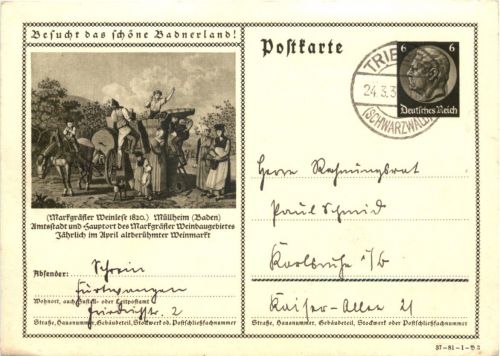 Besucht das schöne Badnerland!
(Markgräfler Weinlese 1820.) Müllheim (Baden)
Amtsstadt und Hauptort des Markgräfler Weinbaugebietes
Jährlich im April altberühmter Weinmarkt
Absender: Schrein
Furtwangen
Wohnort, auch Zustell- oder Leitpostamt
Friedrichstr. 2
Straße, Hausnummer, Gebäudeteil, Stockwerk od. Postschließfachnummer
Postkarte
TRIB
24.3.3
(SCHWARZWALD)
6 6
Deutsches Reich
Herrn Rechnungsrat
Paul Schmid
Karlsruhe i/B
Kaiser-Allee 21
Straße, Hausnummer, Gebäudeteil, Stockwerk oder Postschließfachnummer
37-81-1-B3